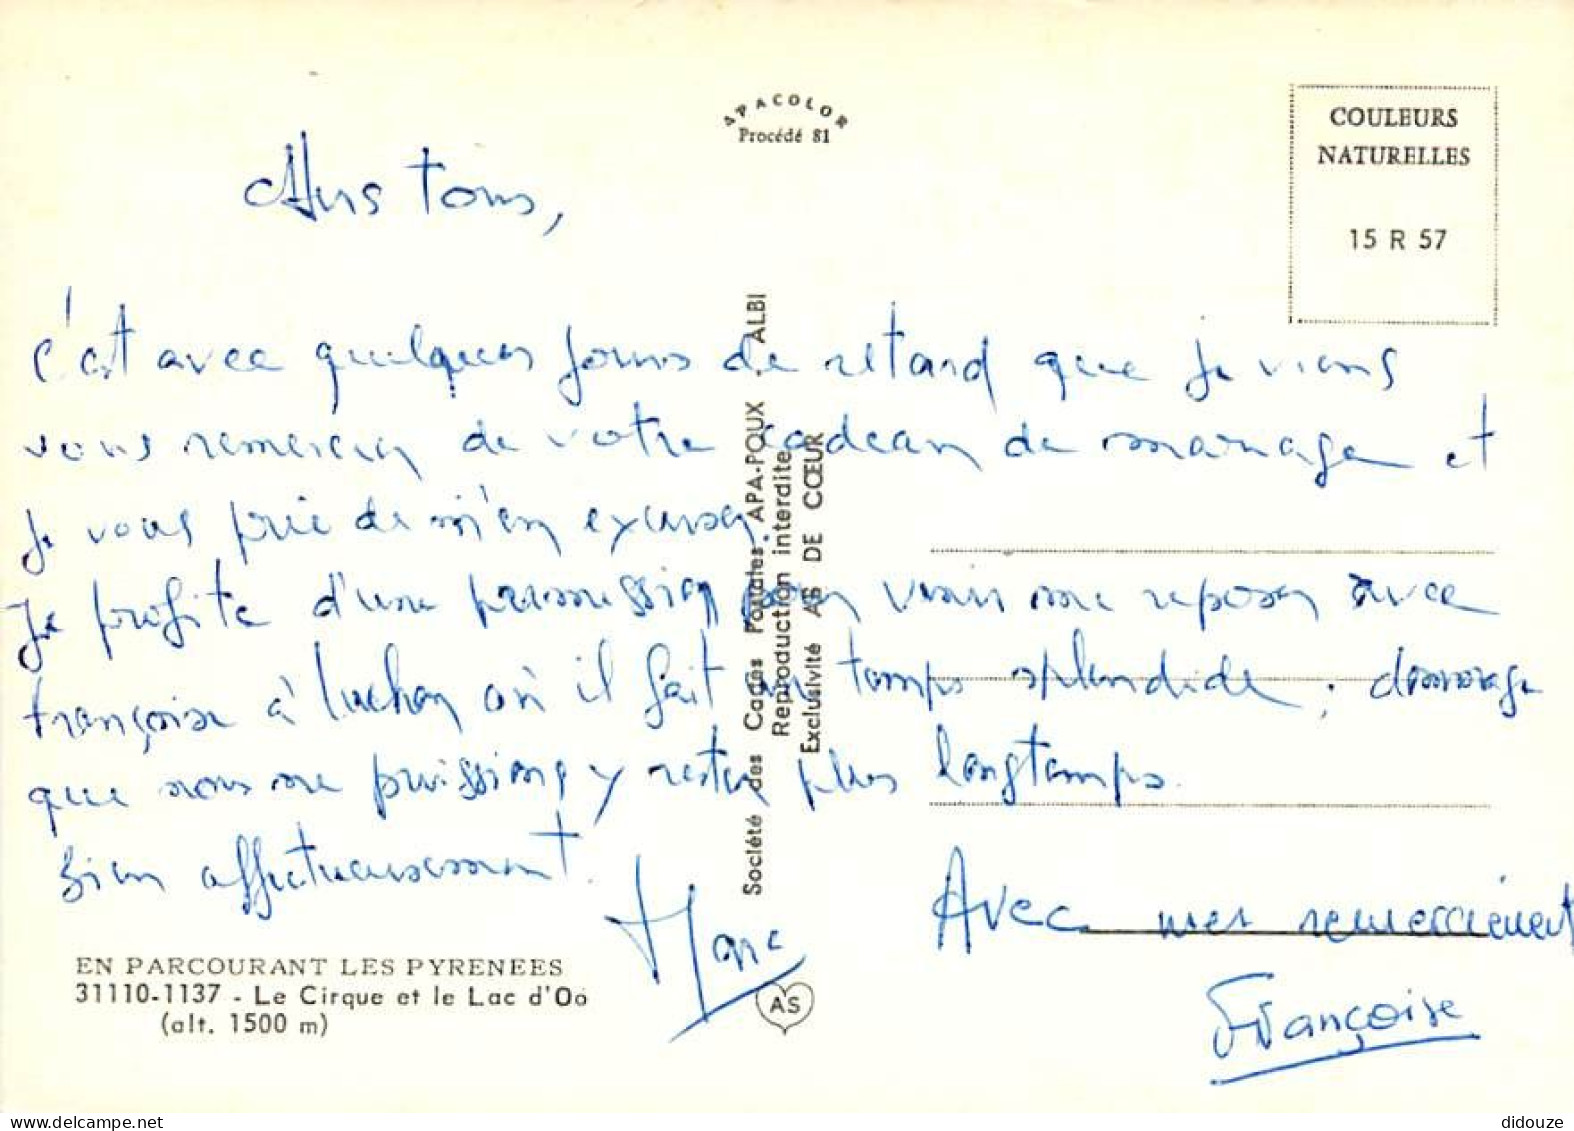 APACOLOR
Procédé 81
COULEURS
NATURELLES
15 R 57
tous,
c'est avec quelques jours de retard que je viens
vous remercier de votre cadeau de mariage et
je vous prie de m'en excuser.
Je profite d'une permission pour venir me reposer avec
Françoise à Luchon où il fait un temps splendide ; dommage
que nous ne puissions y rester plus longtemps.
Bien affectueusement.
Marc
Avec mes remerciements
Françoise
Société des Cartes Postales APA-POUX - ALBI
Reproduction interdite
Exclusivité AS DE CŒUR
EN PARCOURANT LES PYRENEES
31110-1137 - Le Cirque et le Lac d'Oô
(alt. 1500 m)
AS
didouze